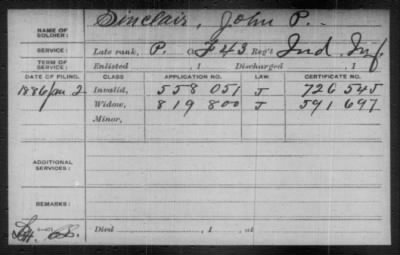 NAME OF SOLDIER: Sinclair, John P.
SERVICE: Late rank, P. Co. F 43 Reg't Ind. Inf.
TERM OF SERVICE: Enlisted , 1 Discharged , 1
DATE OF FILING. CLASS. APPLICATION NO. LAW. CERTIFICATE NO.
1886 Jan 2 Invalid, 558 051 J 726 545
Widow, 819 800 J 591 697
Minor,
ADDITIONAL SERVICES:
REMARKS:
Died , 1 , at